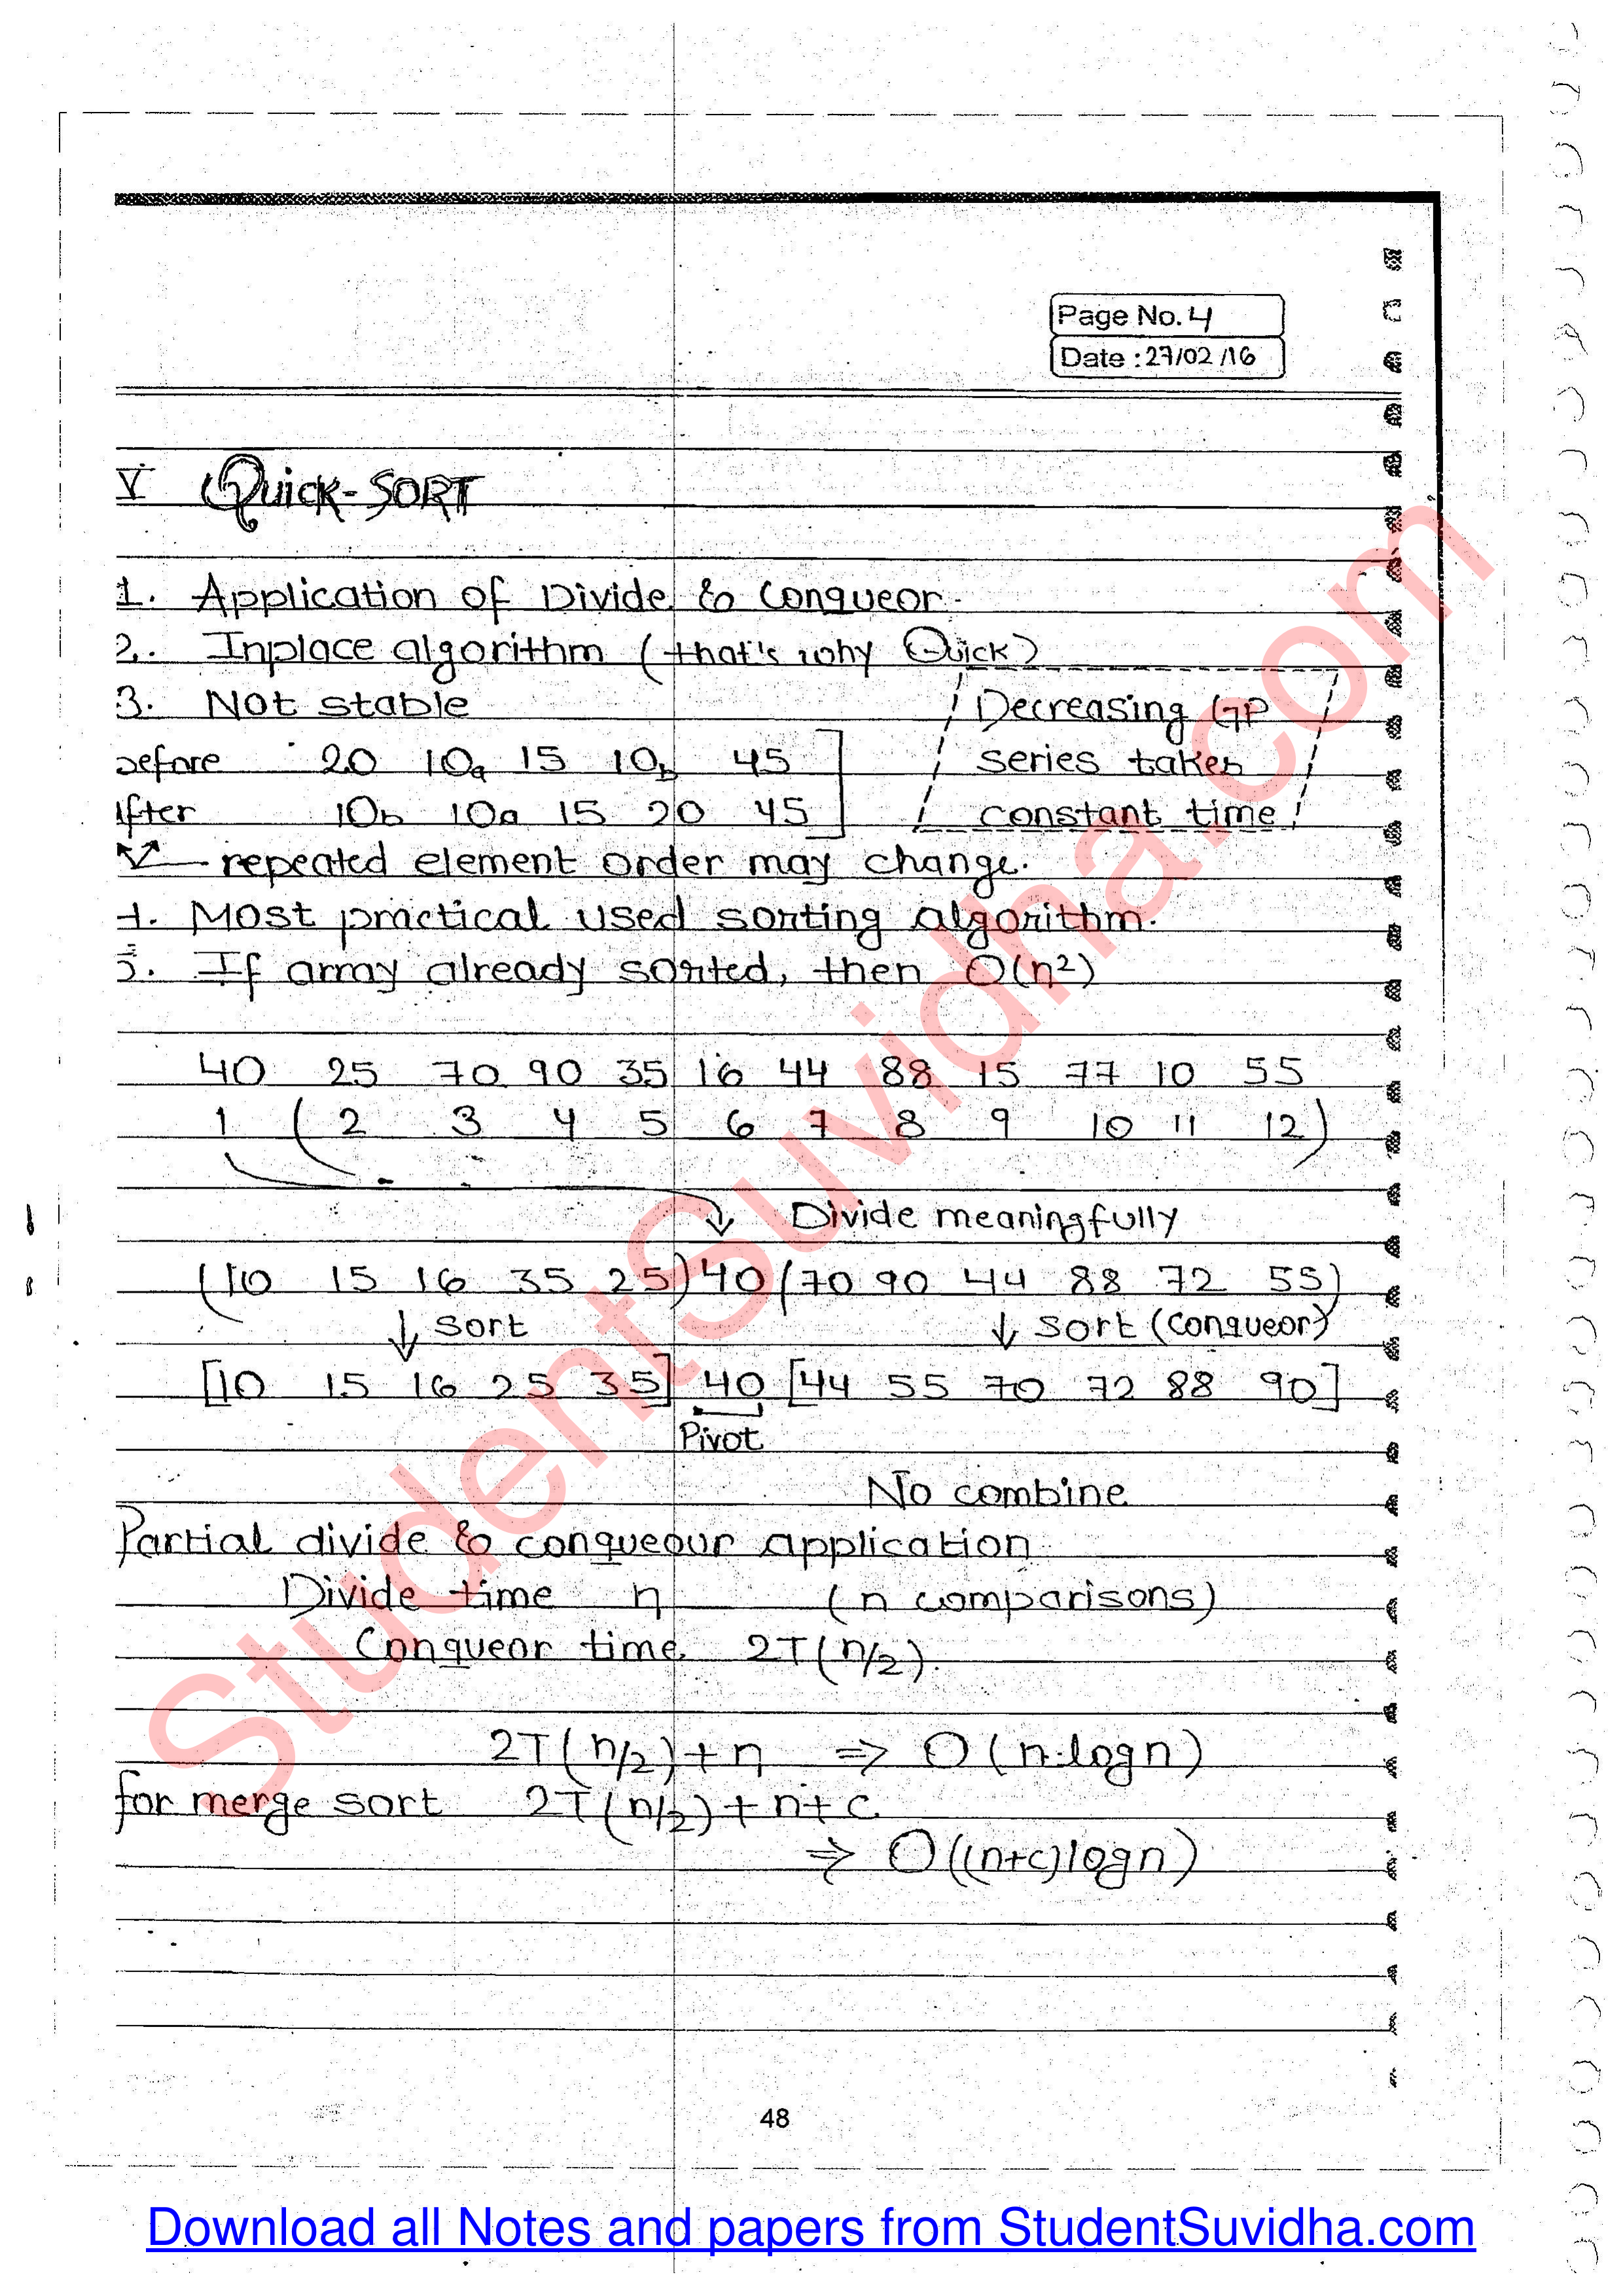 Page No. 4
Date : 27/02/16
V Quick-SORT
1. Application of Divide & Conqueor.
2. Inplace algorithm (that's why Quick)
3. Not stable
Decreasing GP
series takes
constant time
before 20 10a 15 10b 45
After 10b 10a 15 20 45
repeated element order may change.
4. Most practical used sorting algorithm.
5. If array already sorted, then O(n²)
40 25 70 90 35 16 44 88 15 77 10 55
1 ( 2 3 4 5 6 7 8 9 10 11 12 )
Divide meaningfully
(10 15 16 35 25) 40 (70 90 44 88 72 55)
↓ sort ↓ sort (Conqueor)
[10 15 16 25 35] 40 [44 55 70 72 88 90]
Pivot
No combine
Partial divide & conqueour application
Divide time n (n comparisons)
Conqueor time 2T(n/2).
2T(n/2) + n ⇒ O(n.logn)
for merge sort 2T(n/2) + n + c
⇒ O((n+c)logn)
48
StudentSuvidha.com
Download all Notes and papers from StudentSuvidha.com